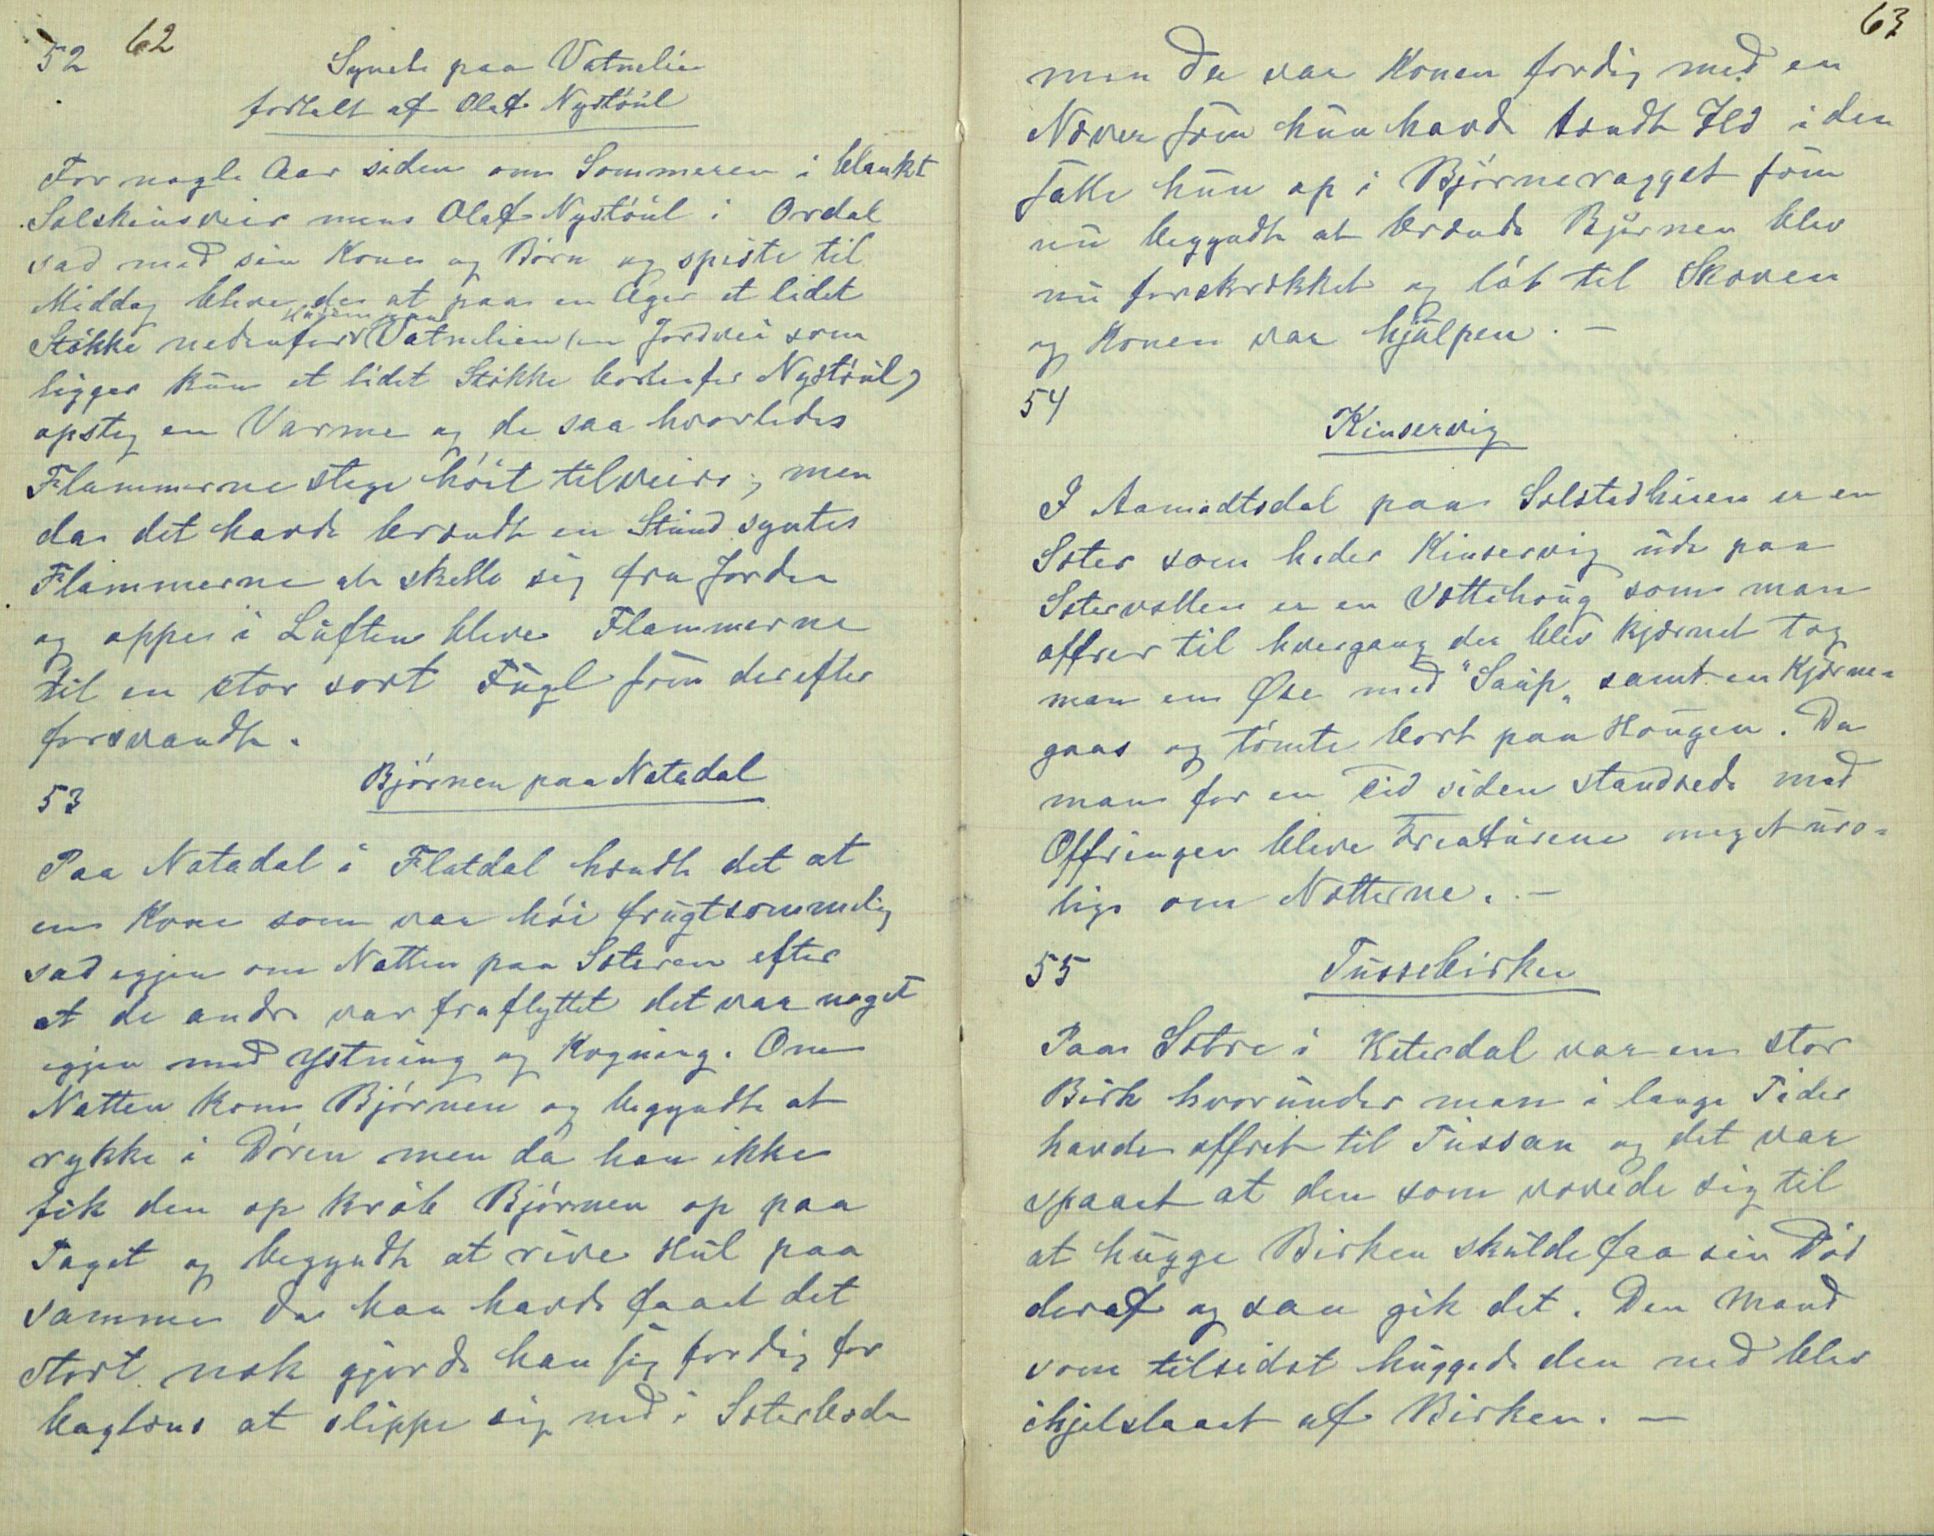 62
52
Synet paa Vatnelien
fortalt af Olaf Nystöül
For nogle Aar siden om Sommeren i blankt
Solskinsveir mens Olaf Nystöül i Ordal
sad med sin Kone og Børn og spiste til
Middag bleve de at paa en Ager et lidet
Støkke nedenfor Vatnelien (en Jordvei som
ligger kun et lidet Støkke bortenfor Nystöül)
opsteg en Varme og de saa hvorledes
Flammerne stege höit tilveirs; men
da det havde brændt en Stund syntes
Flammerne at skelle sig fra Jorden
og oppe i Luften bleve Flammerne
til en stor sort Fugl som derefter
forsvandt.
53
Bjørnen paa Natadal
Paa Natadal i Flatdal hændte det at
en Kone som var höi frugtsommelig
sad igjen om Natten paa Sæteren efter
at de andre var fraflyttet det var noget
igjen med Ystning og Kogning. Om
Natten kom Bjørnen og begyndte at
rykke i Døren men da han ikke
fik den op krøb Bjørnen op paa
Taget og begyndte at rive Hul paa
samme Da han havde faaet det
stort nok gjorde han sig færdig for
baglæns at slippe sig ned i Sæterboden
63
men da var Konen færdig med en
Næver som hun havde tændt Ild i den
satte hun op i Bjørneragget som
nu begyndte at brænde Bjørnen blev
nu forskrækket og løb til Skoven
og Konen var hjülpen. —
54
Kinservig
I Aamodtsdal paa Solstadheien er en
Sæter som heder Kinservig ude paa
Sætervollen er en Vættehoug som man
offrer til hvergang der blev kjærnet tog
man en Øse med "Saup" samt en Kjærne-
gaas og tömte bort paa Hougen. Da
man for en Tid siden standsede med
Offringen bleve Kreaturene meget uro-
lige om Nætterne. —
55
Tussebirken
Paa Sætre i Heterdal var en stor
Birk hvorunder man i lange Tider
havde offret til Tussan og det var
spaaet at den som vovede sig til
at hugge Birken skulde faa sin Död
deraf og saa gik det. Den Mand
som tilsidst huggede den ned blev
ihjelslaaet af Birken. —